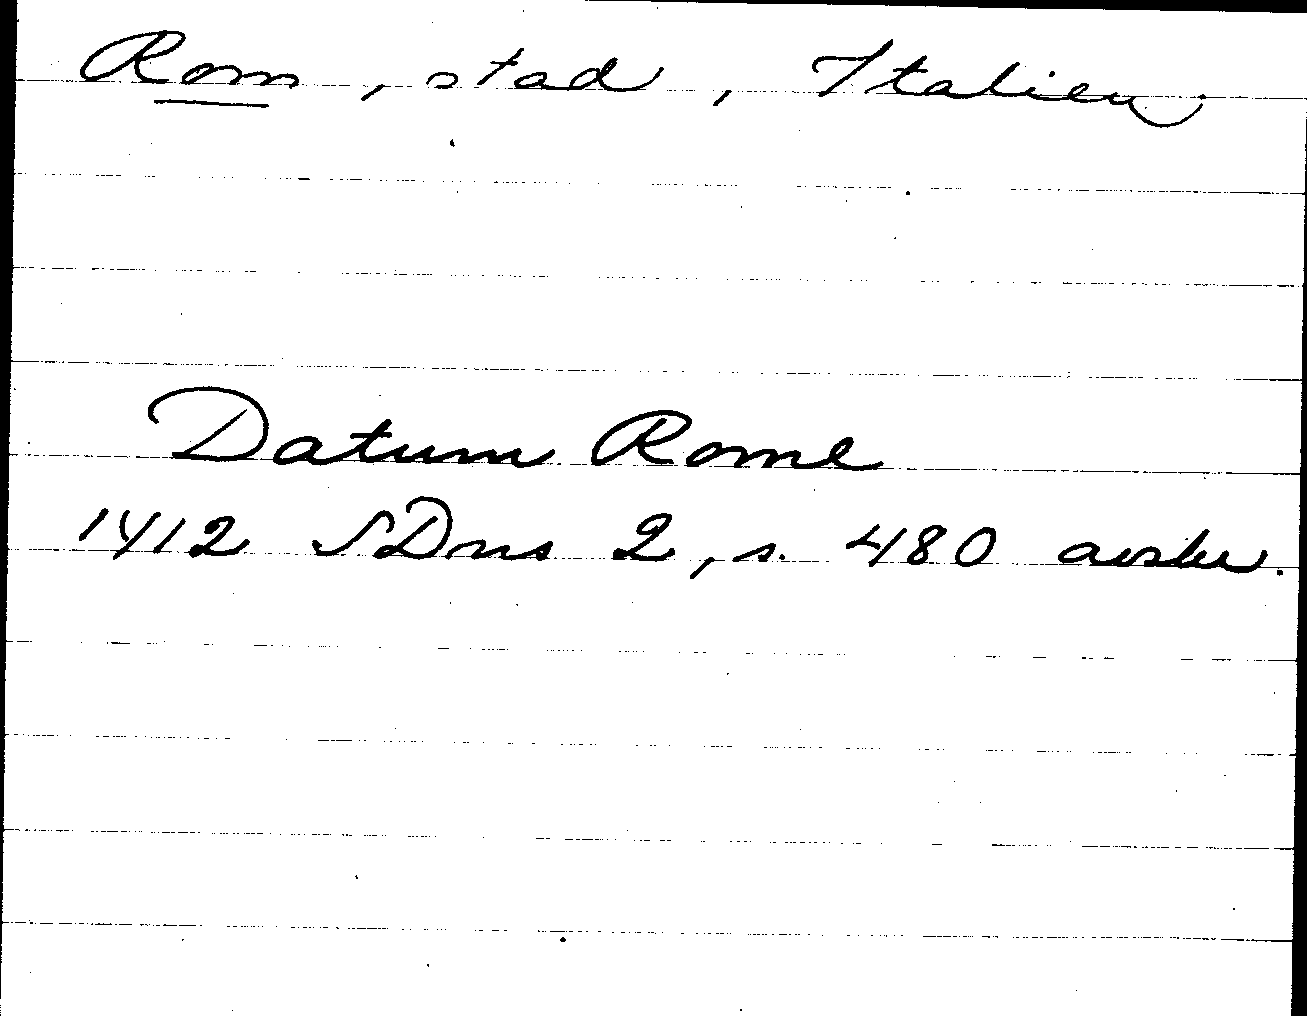 Rom, stad, Italien.
Datum Rome
1412 SDns 2, s. 480 avskr.